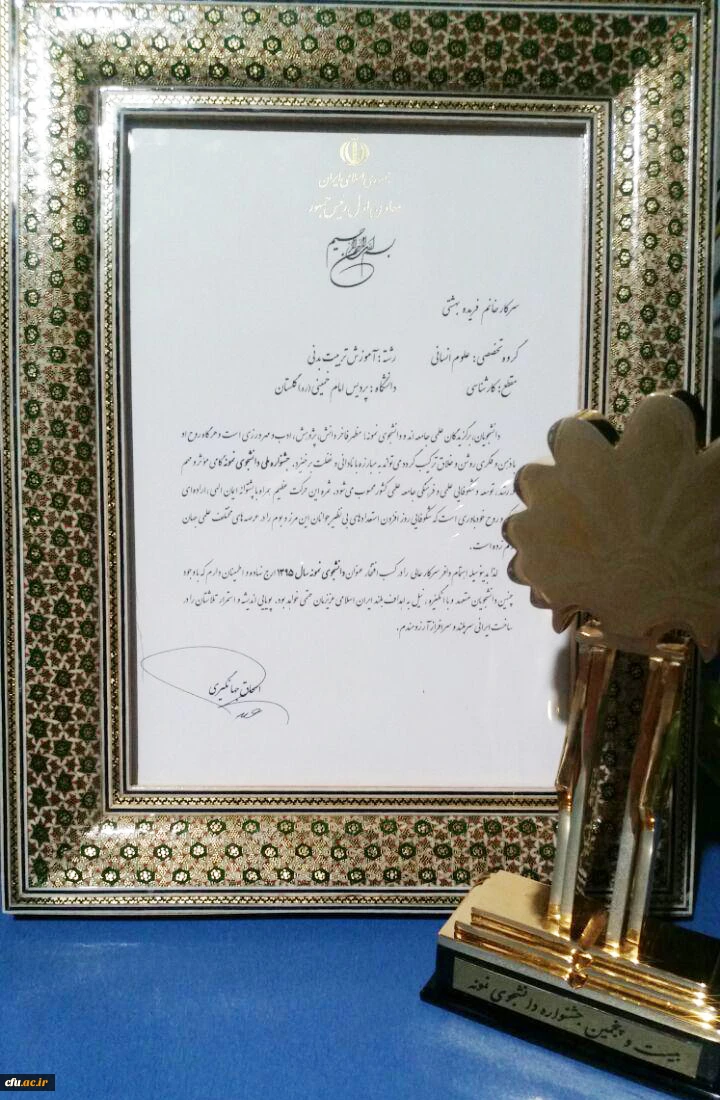 جمهوری اسلامی ایران
معاون اول رئیس جمهور
بسم الله الرحمن الرحیم
سرکار خانم فریده بهشتی
گروه تخصصی: علوم انسانی رشته: آموزش تربیت بدنی
مقطع: کارشناسی دانشگاه: پردیس امام خمینی (ره) گلستان
دانشجویان، برگزیدگان علمی جامعه اند و دانشجوی نمونه؛ مظهر فاخر دانش، پژوهش، ادب و مهرورزی است و هرگاه روح او
با ذهن و فکری روشن و خلاق ترکیب گردد می تواند به مبارزه با نادانی و غفلت برخیزد. جشنواره ملی دانشجوی نمونه گامی موثر و مهم
رشد، توسعه و شکوفایی علمی و فرهنگی جامعه علمی کشور محسوب می شود. ثمره این حرکت عظیم همراه با پشتوانه ایمان الهی، اراده ای
و روح خودباوری است که شکوفایی روز افزون استعدادهای بی نظیر جوانان این مرز و بوم را در عرصه های مختلف علمی جهان
رقم زده است.
لذا بدینوسیله اهتمام وافر سرکار عالی را در کسب افتخار عنوان دانشجوی نمونه سال ۱۳۹۵ ارج نهاده و اطمینان دارم که با وجود
چنین دانشجویان متعهد و با انگیزه، نیل به اهداف بلند ایران اسلامی عزیزمان حتمی خواهد بود. پویایی اندیشه و استمرار تلاشتان را در
ساخت ایرانی سربلند و سرافراز آرزومندم.
اسحاق جهانگیری
بیست و پنجمین جشنواره دانشجوی نمونه
cfu.ac.ir